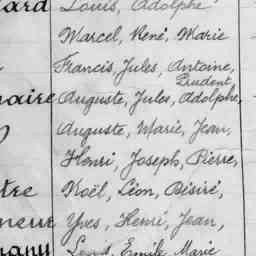 ard Louis, Adolphe
Marcel, René, Marie
Francis, Jules, Antoine,
Prudent,
naire Auguste, Jules, Adolphe,
Auguste, Marie, Jean,
Henri Joseph, Pierre,
tre Noël, Léon, Désiré,
neur Yves, Henri, Jean,
many Louis, Emile, Marie